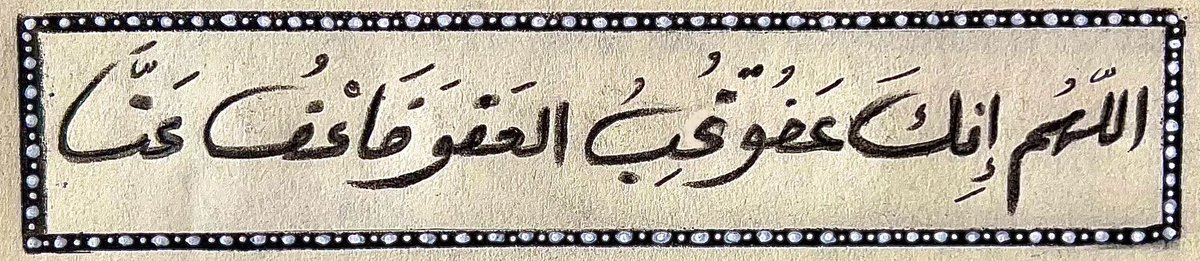 اللّهُم إِنكَ عَفُوّ تُحُبِبُ العَفوَ فَاعْفُ عَنَّا